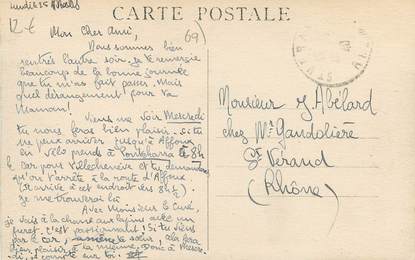 Lundi 25
12€
CARTE POSTALE
69)
Mon Cher Ami,
Nous sommes bien
rentrés l'autre soir. Je te remercie
beaucoup de la bonne journée
que tu m'as fait passer. Mais
quel dérangement pour ta
Maman!
Viens me voir Mercredi
tu nous feras bien plaisir. Si tu
ne peux arriver jusqu'à Affoux
en vélo prends à Pontcharra à 8h
le car pour Villechenève et tu demanderas
qu'on t'arrête à la route d'Affoux.
(Il arrive à cet endroit vers 8h½).
Je me trouverai là
Avec Monsieur le Curé,
je vais à la chasse aux lapins avec un
furet. C'est passionnant! Si tu viens
par le car, amène ta sœur, cela fera
bien plaisir à la mienne. Donc à Mercre-
di, je compte sur toi.
Monsieur J Abélard
chez Mr Gandolière
St Vérand
(Rhône)